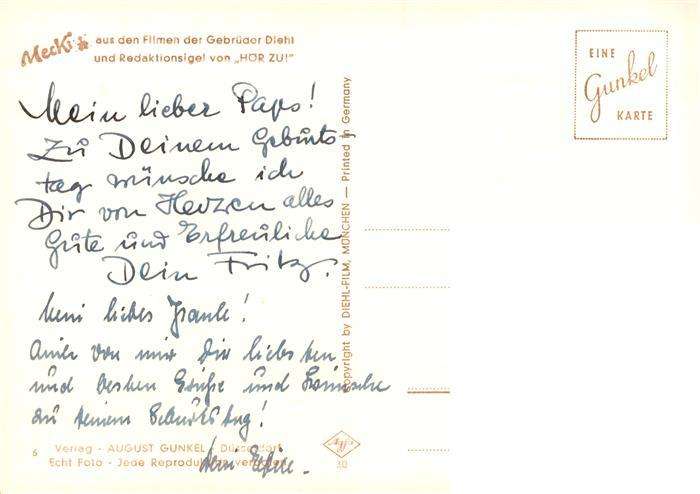 Mecki
aus den Filmen der Gebrüder Diehl
und Redaktionsigel von „HÖR ZU!"
EINE
Gunkel
KARTE
Mein lieber Paps!
Zu Deinem Geburts-
tag wünsche ich
Dir von Herzen alles
Gute und Erfreuliche
Dein Fritz.
Mein liebes
Auch von mir Dir liebsten
und besten Grüße und Wünsche
zu Deinem Geburtstag!
Dein
Copyright by DIEHL-FILM, MÜNCHEN — Printed in Germany
6
Verlag - AUGUST GUNKEL - Düsseldorf
Echt Foto - Jede Reproduktion verboten
30